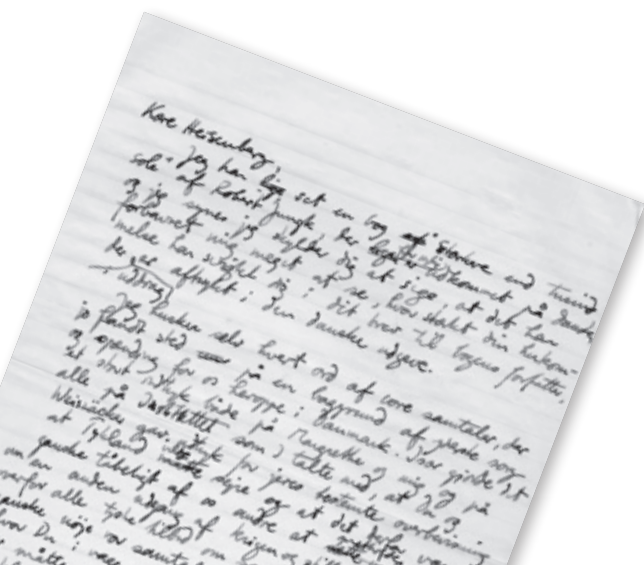 Kære Heisenberg,
Jeg har lige set en bog Stærkere end tusind
sole" af Robert Jungk, der udkommet på dansk
og jeg synes jeg skylder dig at sige, at det har
forbavset mig meget at se, hvor stærkt din hukom-
melse har svigtet dig i dit brev til bogens forfatter,
der er aftrykt i den danske udgave.
Jeg husker selv hvert ord af vore samtaler, der
jo fandt sted på en baggrund af yderste sorg
og spænding for os heroppe i Danmark. Især gjorde det
et stort indtryk både på Margrethe og mig og på
alle på Instituttet som I talte med, at Du og
Weizsäcker gav udtryk for jeres bestemte overbevisning
at Tyskland ville sejre og at det derfor var
ganske tåbeligt af os andre at
om en anden udgang af krigen og
overfor alle tyske tilbud om
ganske nøje vor samtale
hvor Du i
måtte